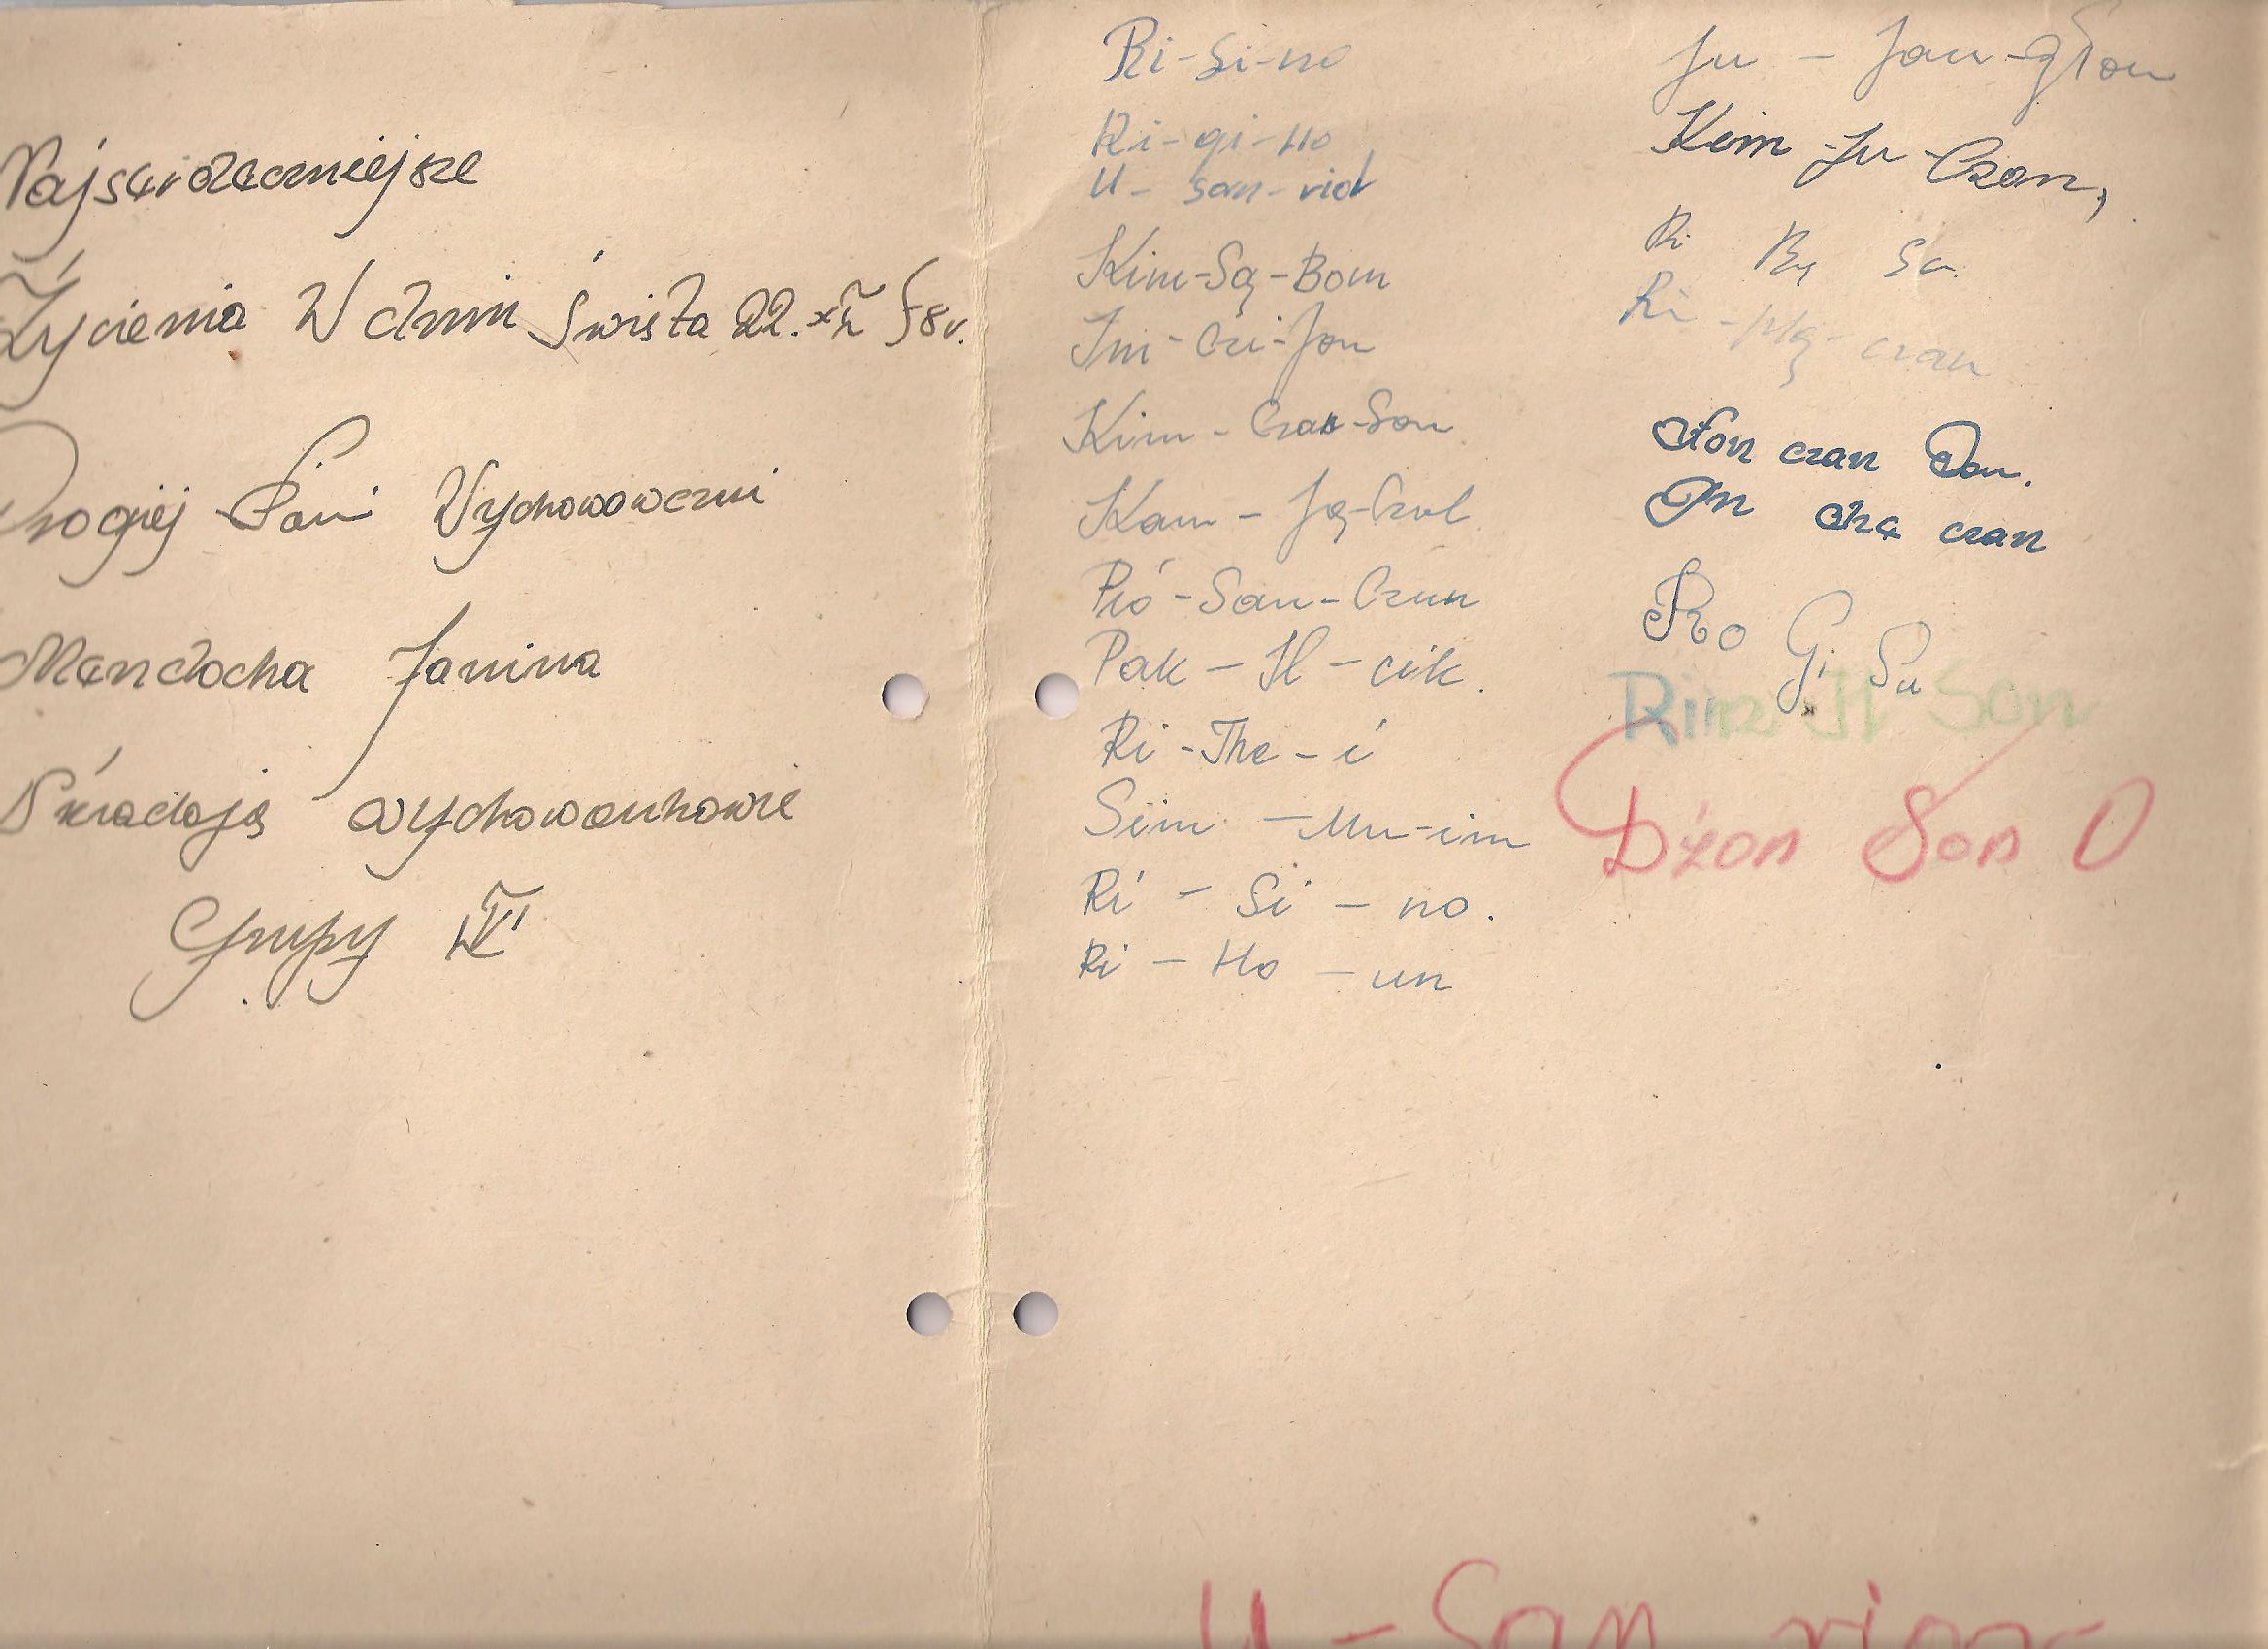 Najserdeczniejsze
Życienia W dniu Święta 22. XII 58r.
Drogiej Pani Wychowawczni
Mandocha Janina
Składają wychowankowie
Grupy
Ri-Si-no
Ri-gi-Ho
U-san-rid
Kim-Są-Bom
Im-Czi-Jon
Kim-Czan-Son
Kam-Ją-Czol
Pió-San-Czun
Pak-Il-cik.
Ri-The-i
Sim-Mu-im
Ri-Si-no.
Ri-Ho-un
Ju-Jan-
Kim-Ju-Czan,
Ri By Su.
Ri-Hą-czan
czan
czan
Gi Su
Rim Il Son
Dżon Son O
U-San